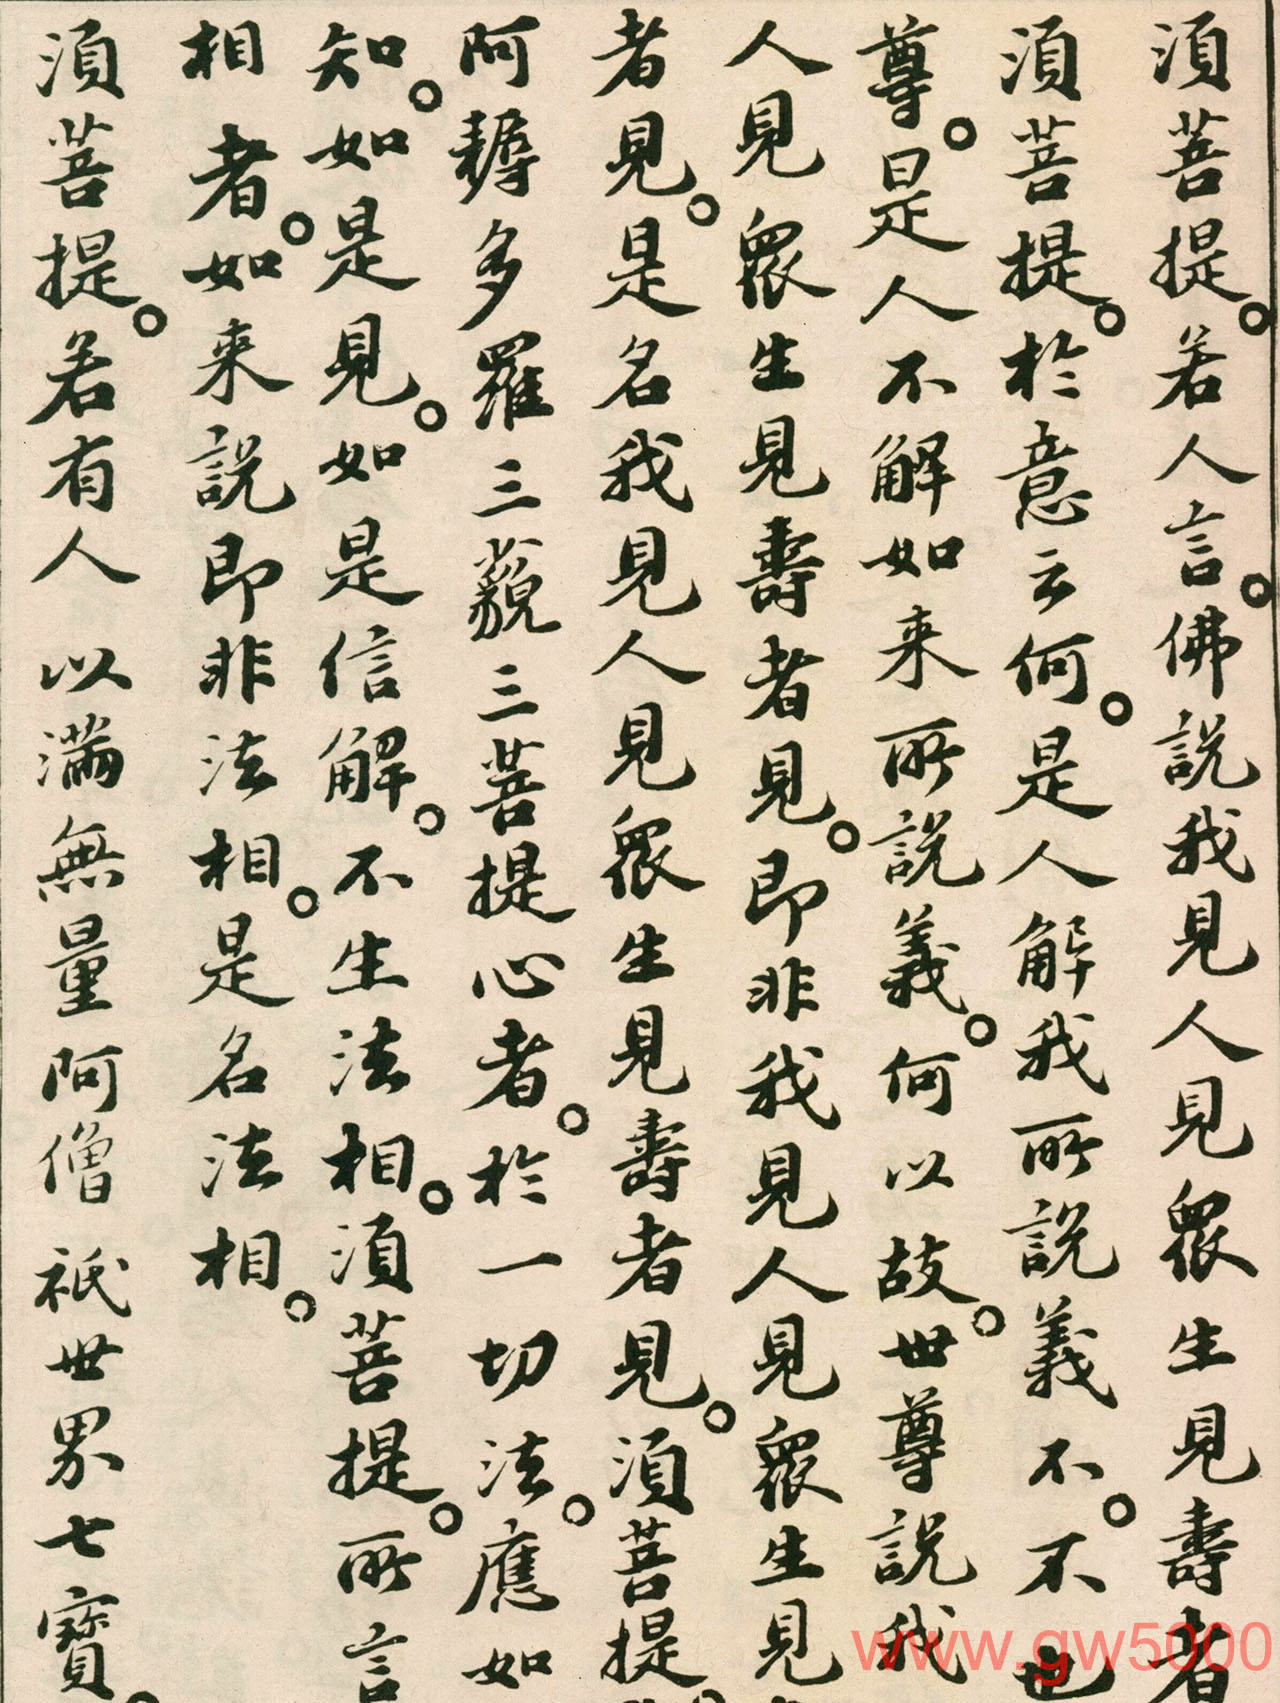 須菩提。若人言。佛說我見人見眾生見壽者
須菩提。於意云何。是人解我所說義不。不也
尊。是人不解如来所說義。何以故。世尊說我
人見眾生見壽者見。即非我見人見眾生見
者見。是名我見人見眾生見壽者見。須菩提
阿耨多羅三藐三菩提心者。於一切法。應如
知。如是見。如是信解。不生法相。須菩提。所言
相者。如来說即非法相。是名法相。
須菩提。若有人以滿無量阿僧祇世界七寶。
www.gw5000